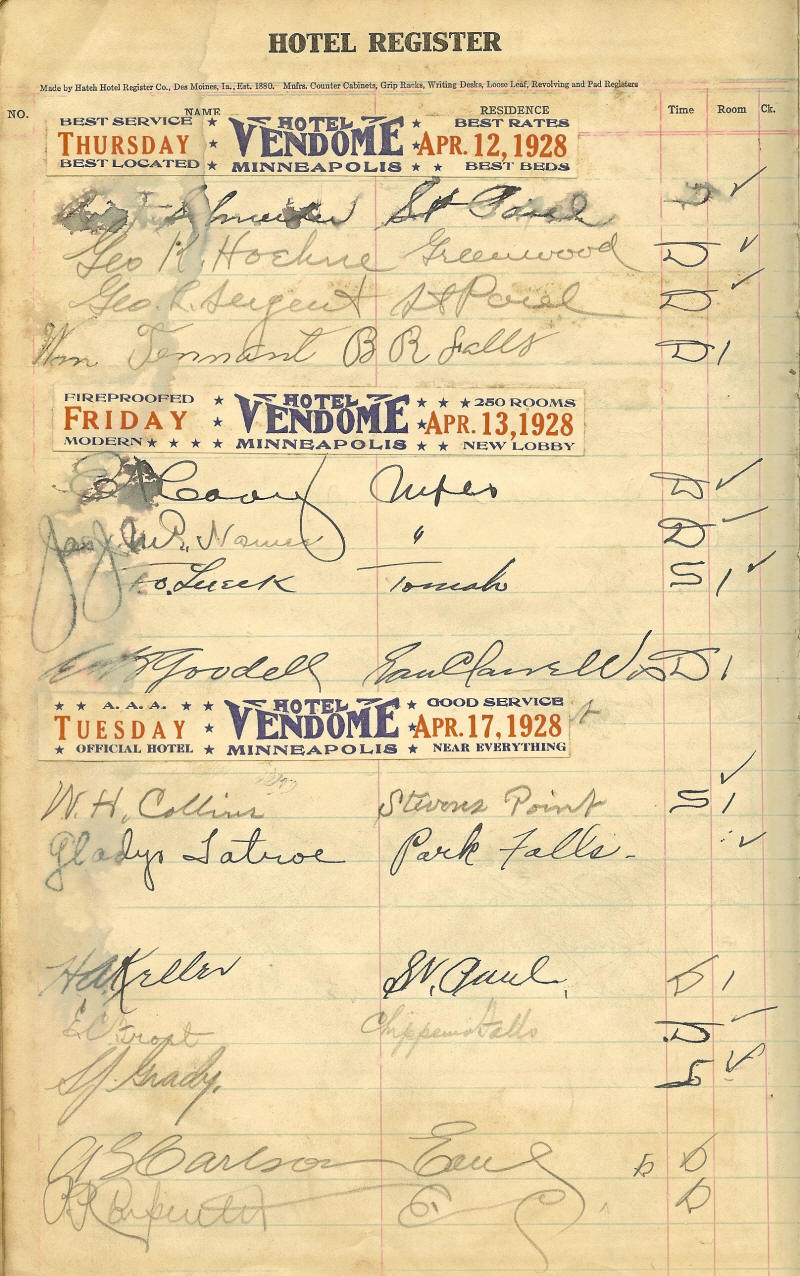 HOTEL REGISTER
Made by Hatch Hotel Register Co., Des Moines, Ia., Est. 1880. Mnfrs. Counter Cabinets, Grip Racks, Writing Desks, Loose Leaf, Revolving and Pad Registers
NO. NAME RESIDENCE Time Room Ck.
BEST SERVICE ★ HOTEL ★ BEST RATES
THURSDAY ★ VENDOME ★ APR. 12, 1928
BEST LOCATED ★ MINNEAPOLIS ★ ★ BEST BEDS
St Paul D ✓
Geo K. Hoehne Greenwood D ✓
Geo. L. Sergent St Paul D ✓
Wm Tennant B R Falls D 1
FIREPROOFED ★ HOTEL ★ ★ ★ 250 ROOMS
FRIDAY ★ VENDOME ★ APR. 13, 1928
MODERN ★ ★ ★ ★ MINNEAPOLIS ★ ★ NEW LOBBY
Mpls D ✓
" D ✓
Lueck Tomah S 1 ✓
Goodell Eau Claire Wis D 1
★ ★ A.A.A. ★ ★ HOTEL ★ GOOD SERVICE
TUESDAY ★ VENDOME ★ APR. 17, 1928
★ OFFICIAL HOTEL ★ MINNEAPOLIS ★ NEAR EVERYTHING
✓
W. H. Collins Stevens Point S 1
Gladys Latroe Park Falls - ✓
H A Keller St. Paul. D 1
E C Frost Chippewa Falls D ✓
S J Grady. S ✓
A G Carlson Eau D D
Carpenter E D